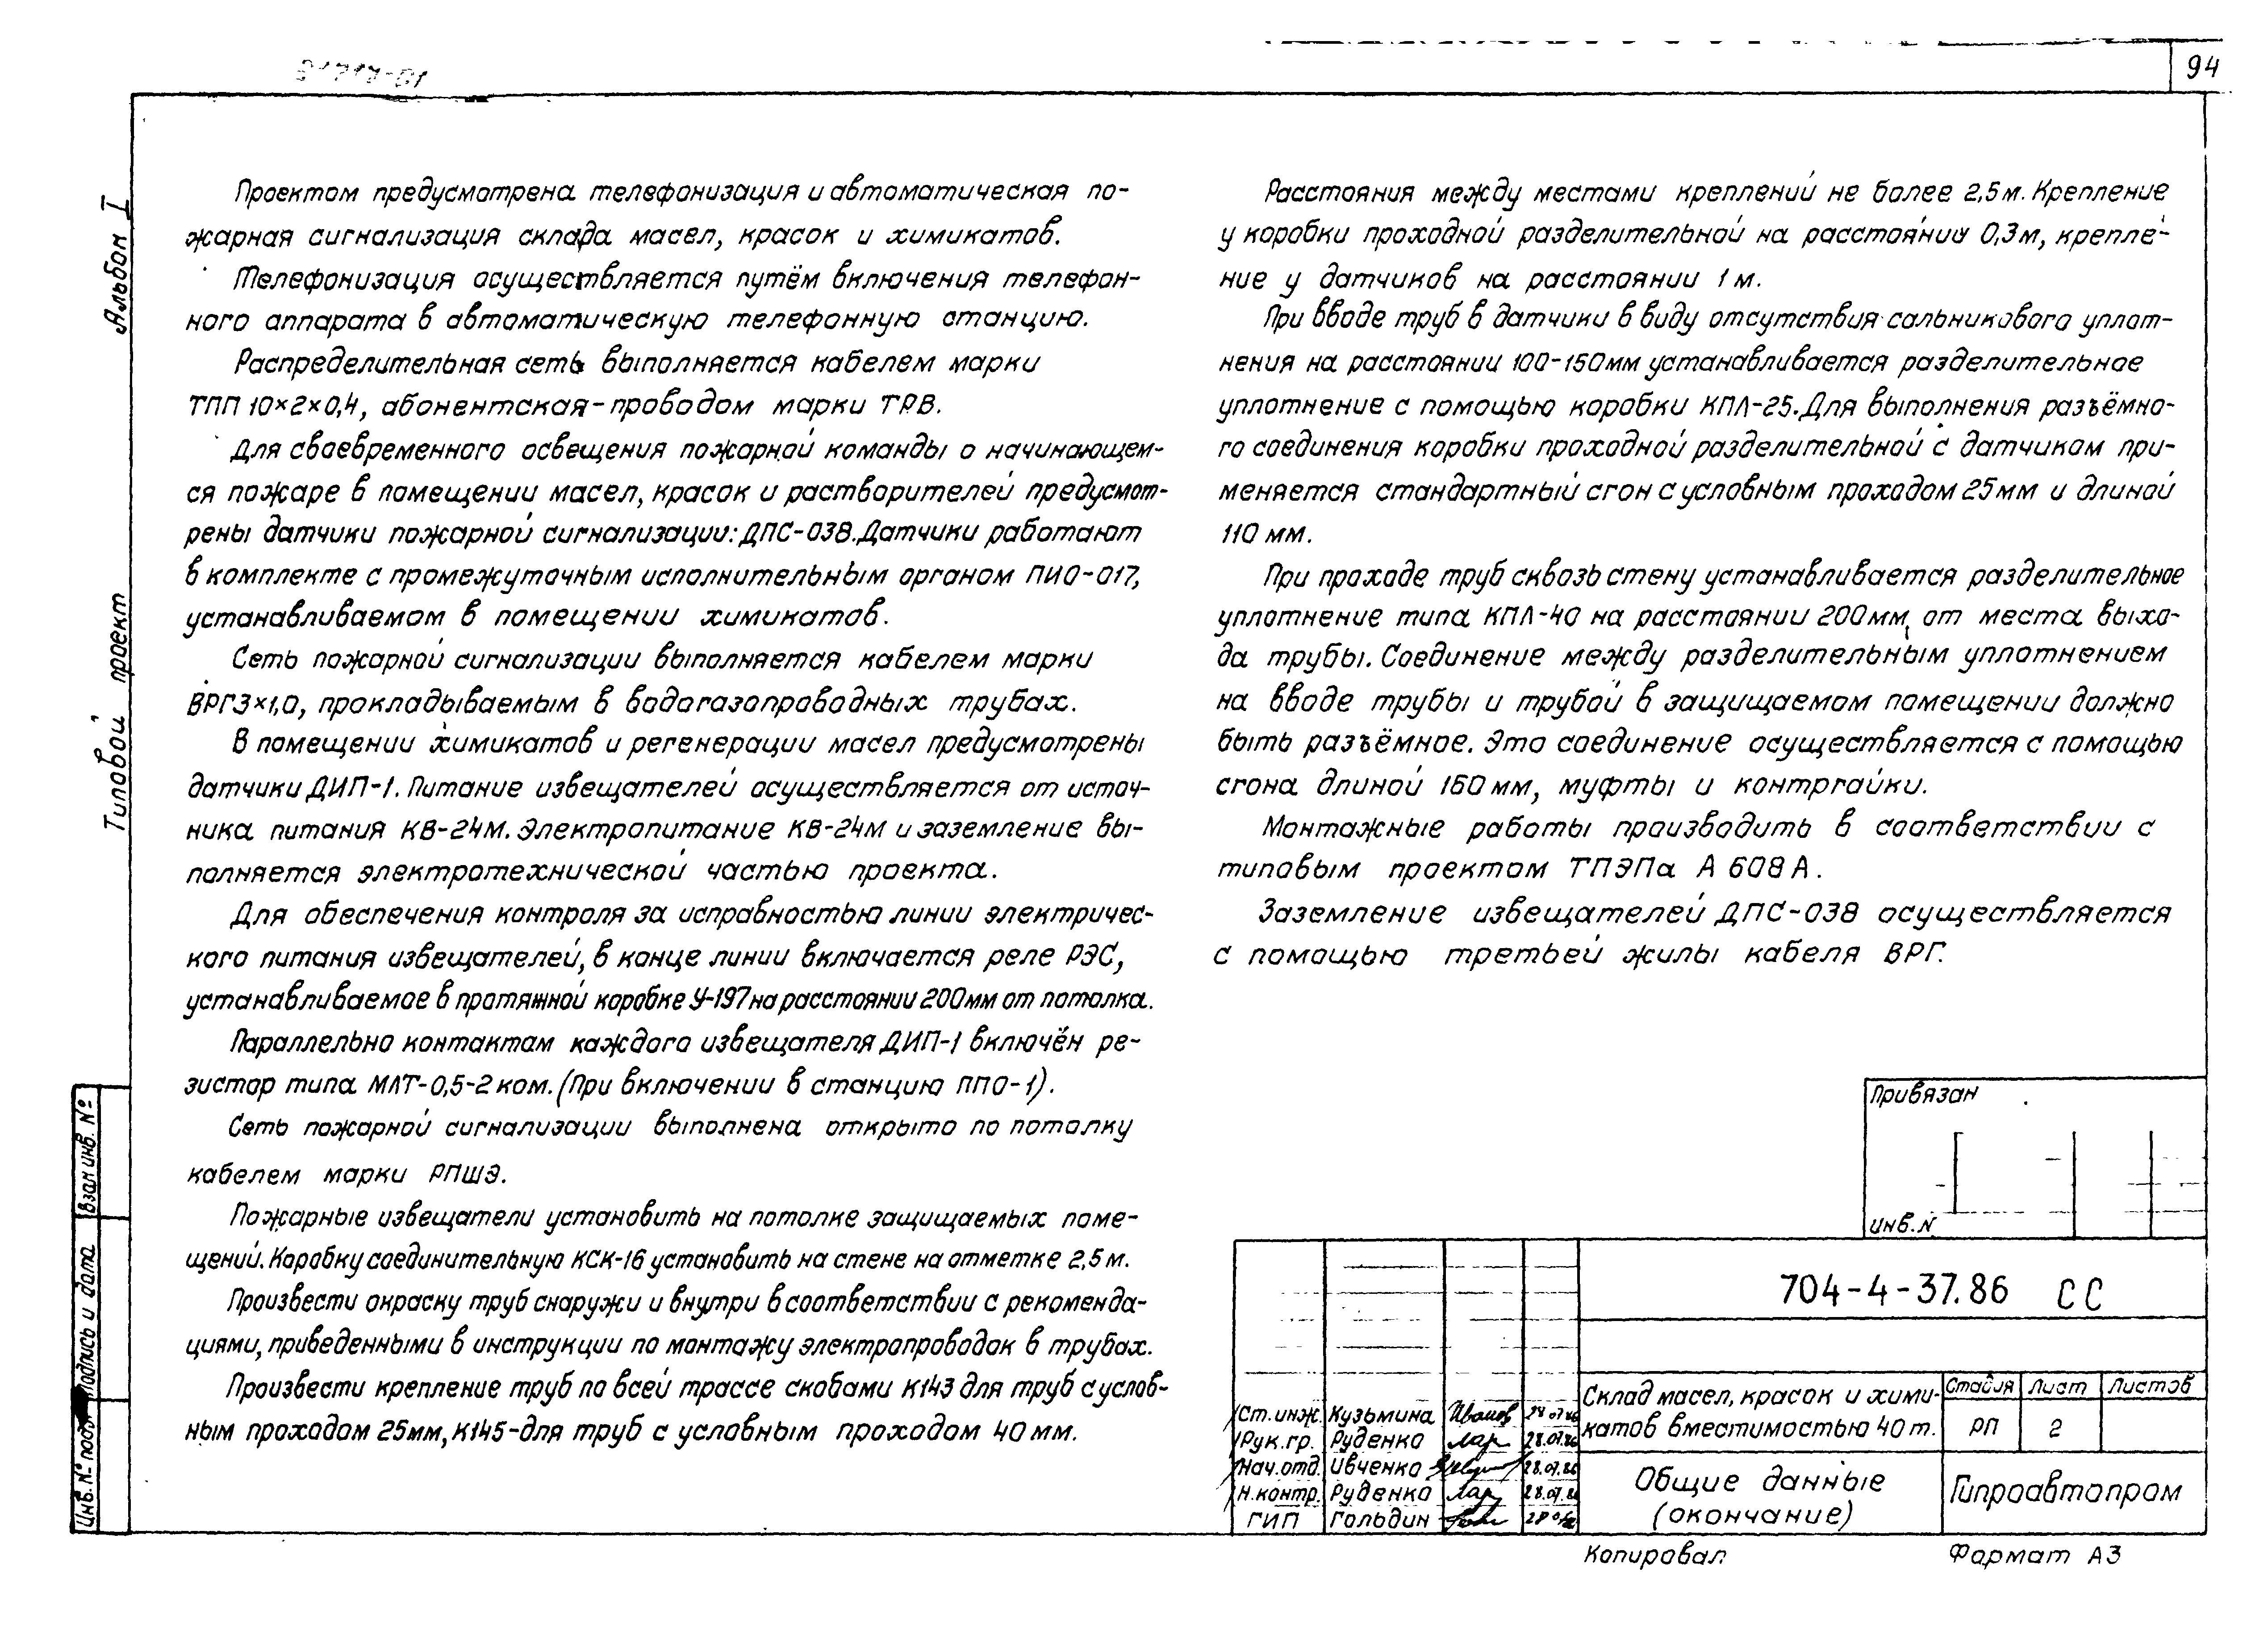 94
Альбом I
Типовой проект
Проектом предусмотрена телефонизация и автоматическая по-
жарная сигнализация склада масел, красок и химикатов.
Телефонизация осуществляется путём включения телефон-
ного аппарата в автоматическую телефонную станцию.
Распределительная сеть выполняется кабелем марки
ТПП 10×2×0,4, абонентская-проводом марки ТРВ.
Для своевременного освещения пожарной команды о начинающем-
ся пожаре в помещении масел, красок и растворителей предусмот-
рены датчики пожарной сигнализации: ДПС-038. Датчики работают
в комплекте с промежуточным исполнительным органом ПИО-017,
устанавливаемом в помещении химикатов.
Сеть пожарной сигнализации выполняется кабелем марки
ВРГ3×1,0, прокладываемым в водогазопроводных трубах.
В помещении химикатов и регенерации масел предусмотрены
датчики ДИП-1. Питание извещателей осуществляется от источ-
ника питания КВ-24М. Электропитание КВ-24М и заземление вы-
полняется электротехнической частью проекта.
Для обеспечения контроля за исправностью линии электричес-
кого питания извещателей, в конце линии включается реле РЭС,
устанавливаемое в протяжной коробке У-197 на расстоянии 200мм от потолка.
Параллельно контактам каждого извещателя ДИП-1 включён ре-
зистор типа МЛТ-0,5-2 ком. (При включении в станцию ППО-1).
Сеть пожарной сигнализации выполнена открыто по потолку
кабелем марки РПШЭ.
Пожарные извещатели установить на потолке защищаемых поме-
щений. Коробку соединительную КСК-16 установить на стене на отметке 2,5 м.
Произвести окраску труб снаружи и внутри в соответствии с рекоменда-
циями, приведенными в инструкции по монтажу электропроводок в трубах.
Произвести крепление труб по всей трассе скобами К143 для труб с услов-
ным проходом 25мм, К145-для труб с условным проходом 40 мм.
Расстояния между местами креплений не более 2,5 м. Крепление
у коробки проходной разделительной на расстоянии 0,3м, крепле-
ние у датчиков на расстоянии 1 м.
При вводе труб в датчики в виду отсутствия сальникового уплот-
нения на расстоянии 100-150мм устанавливается разделительное
уплотнение с помощью коробки КПЛ-25. Для выполнения разъёмно-
го соединения коробки проходной разделительной с датчиком при-
меняется стандартный сгон с условным проходом 25мм и длиной
110 мм.
При проходе труб сквозь стену устанавливается разделительное
уплотнение типа КПЛ-40 на расстоянии 200мм от места выхо-
да трубы. Соединение между разделительным уплотнением
на вводе трубы и трубой в защищаемом помещении должно
быть разъёмное. Это соединение осуществляется с помощью
сгона длиной 160 мм, муфты и контргайки.
Монтажные работы производить в соответствии с
типовым проектом ТПЭПа А 608 А.
Заземление извещателей ДПС-038 осуществляется
с помощью третьей жилы кабеля ВРГ.
Привязан
инв. N
704-4-37.86 СС
Склад масел, красок и хими-
катов вместимостью 40 т.
Стадия Лист Листов
РП 2
Ст. инж. Кузьмина
Рук. гр. Руденко 28.07.86
Нач. отд. Ивченко 28.07.86
Н. контр. Руденко 28.07.86
ГИП Гольдин
Общие данные
(окончание)
Гипроавтопром
Копировал
Формат А3
Взам инв. №
Подпись и дата
Инв. № подл